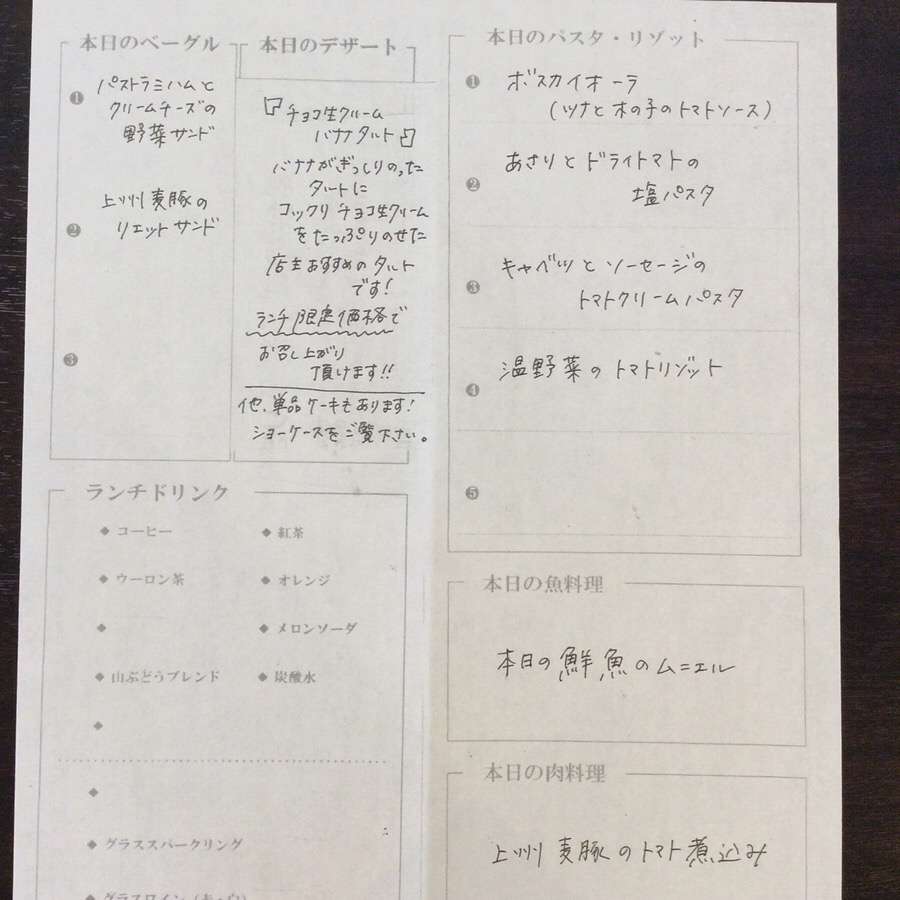 本日のベーグル
❶
パストラミハムと
クリームチーズの
野菜サンド
❷
上州麦豚の
リエットサンド
❸
本日のデザート
『チョコ生クリーム
バナナタルト』
バナナがぎっしりのった
タルトに
コックリチョコ生クリーム
をたっぷりのせた
店主おすすめのタルト
です!
ランチ限定価格で
お召し上がり
頂けます!!
他、単品ケーキもあります!
ショーケースをご覧下さい。
ランチドリンク
◆ コーヒー
◆ 紅茶
◆ ウーロン茶
◆ オレンジ
◆
◆ メロンソーダ
◆ 山ぶどうブレンド
◆ 炭酸水
◆
◆
◆ グラススパークリング
◆ グラスワイン(赤・白)
本日のパスタ・リゾット
❶
ボスカイオーラ
(ツナと木の子のトマトソース)
❷
あさりとドライトマトの
塩パスタ
❸
キャベツとソーセージの
トマトクリームパスタ
❹
温野菜のトマトリゾット
❺
本日の魚料理
本日の鮮魚のムニエル
本日の肉料理
上州麦豚のトマト煮込み